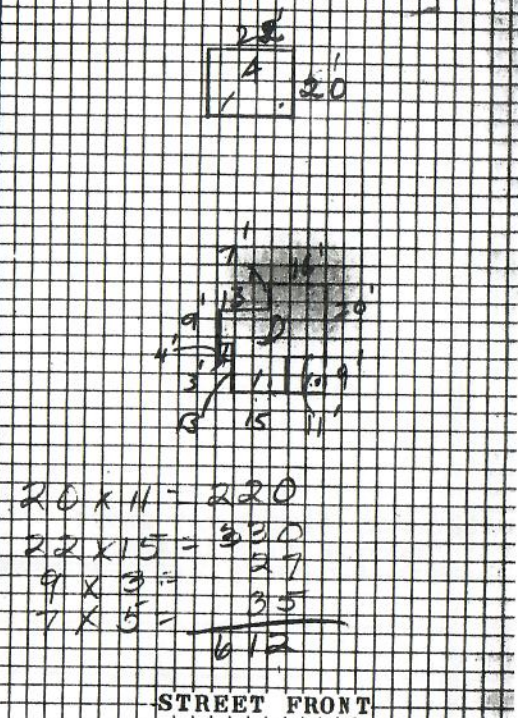 A
20'
7' 16'
13
9' 20'
D
4' I
3' 9'
B 15 11'
20 x 11 = 220
22 x 15 = 330
9 x 3 = 27
7 x 5 = 35
612
STREET FRONT